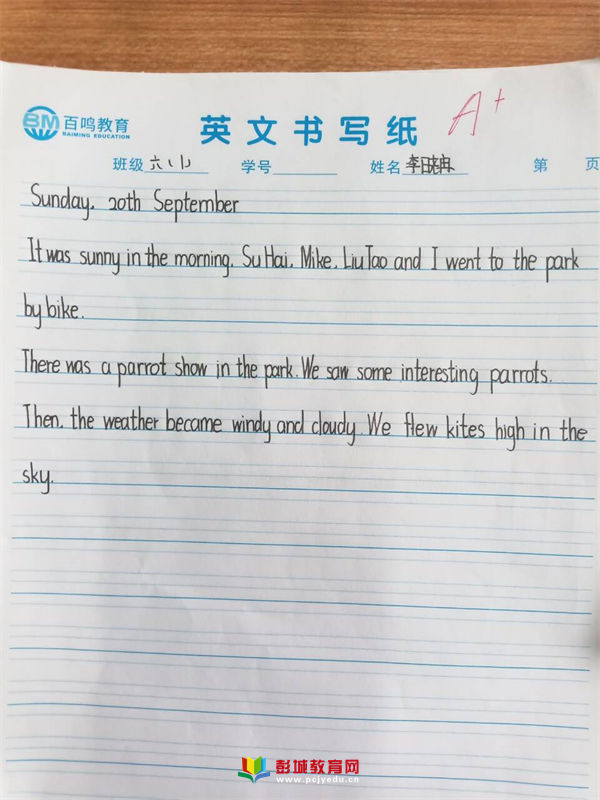 BM 百鸣教育
BAIMING EDUCATION
英文书写纸
A+
班级 六(1) 学号 姓名 李 第 页
Sunday, 20th September
It was sunny in the morning. Su Hai, Mike, Liu Tao and I went to the park
by bike.
There was a parrot show in the park. We saw some interesting parrots.
Then, the weather became windy and cloudy. We flew kites high in the
sky.
彭城教育网
www.pcjyedu.cn